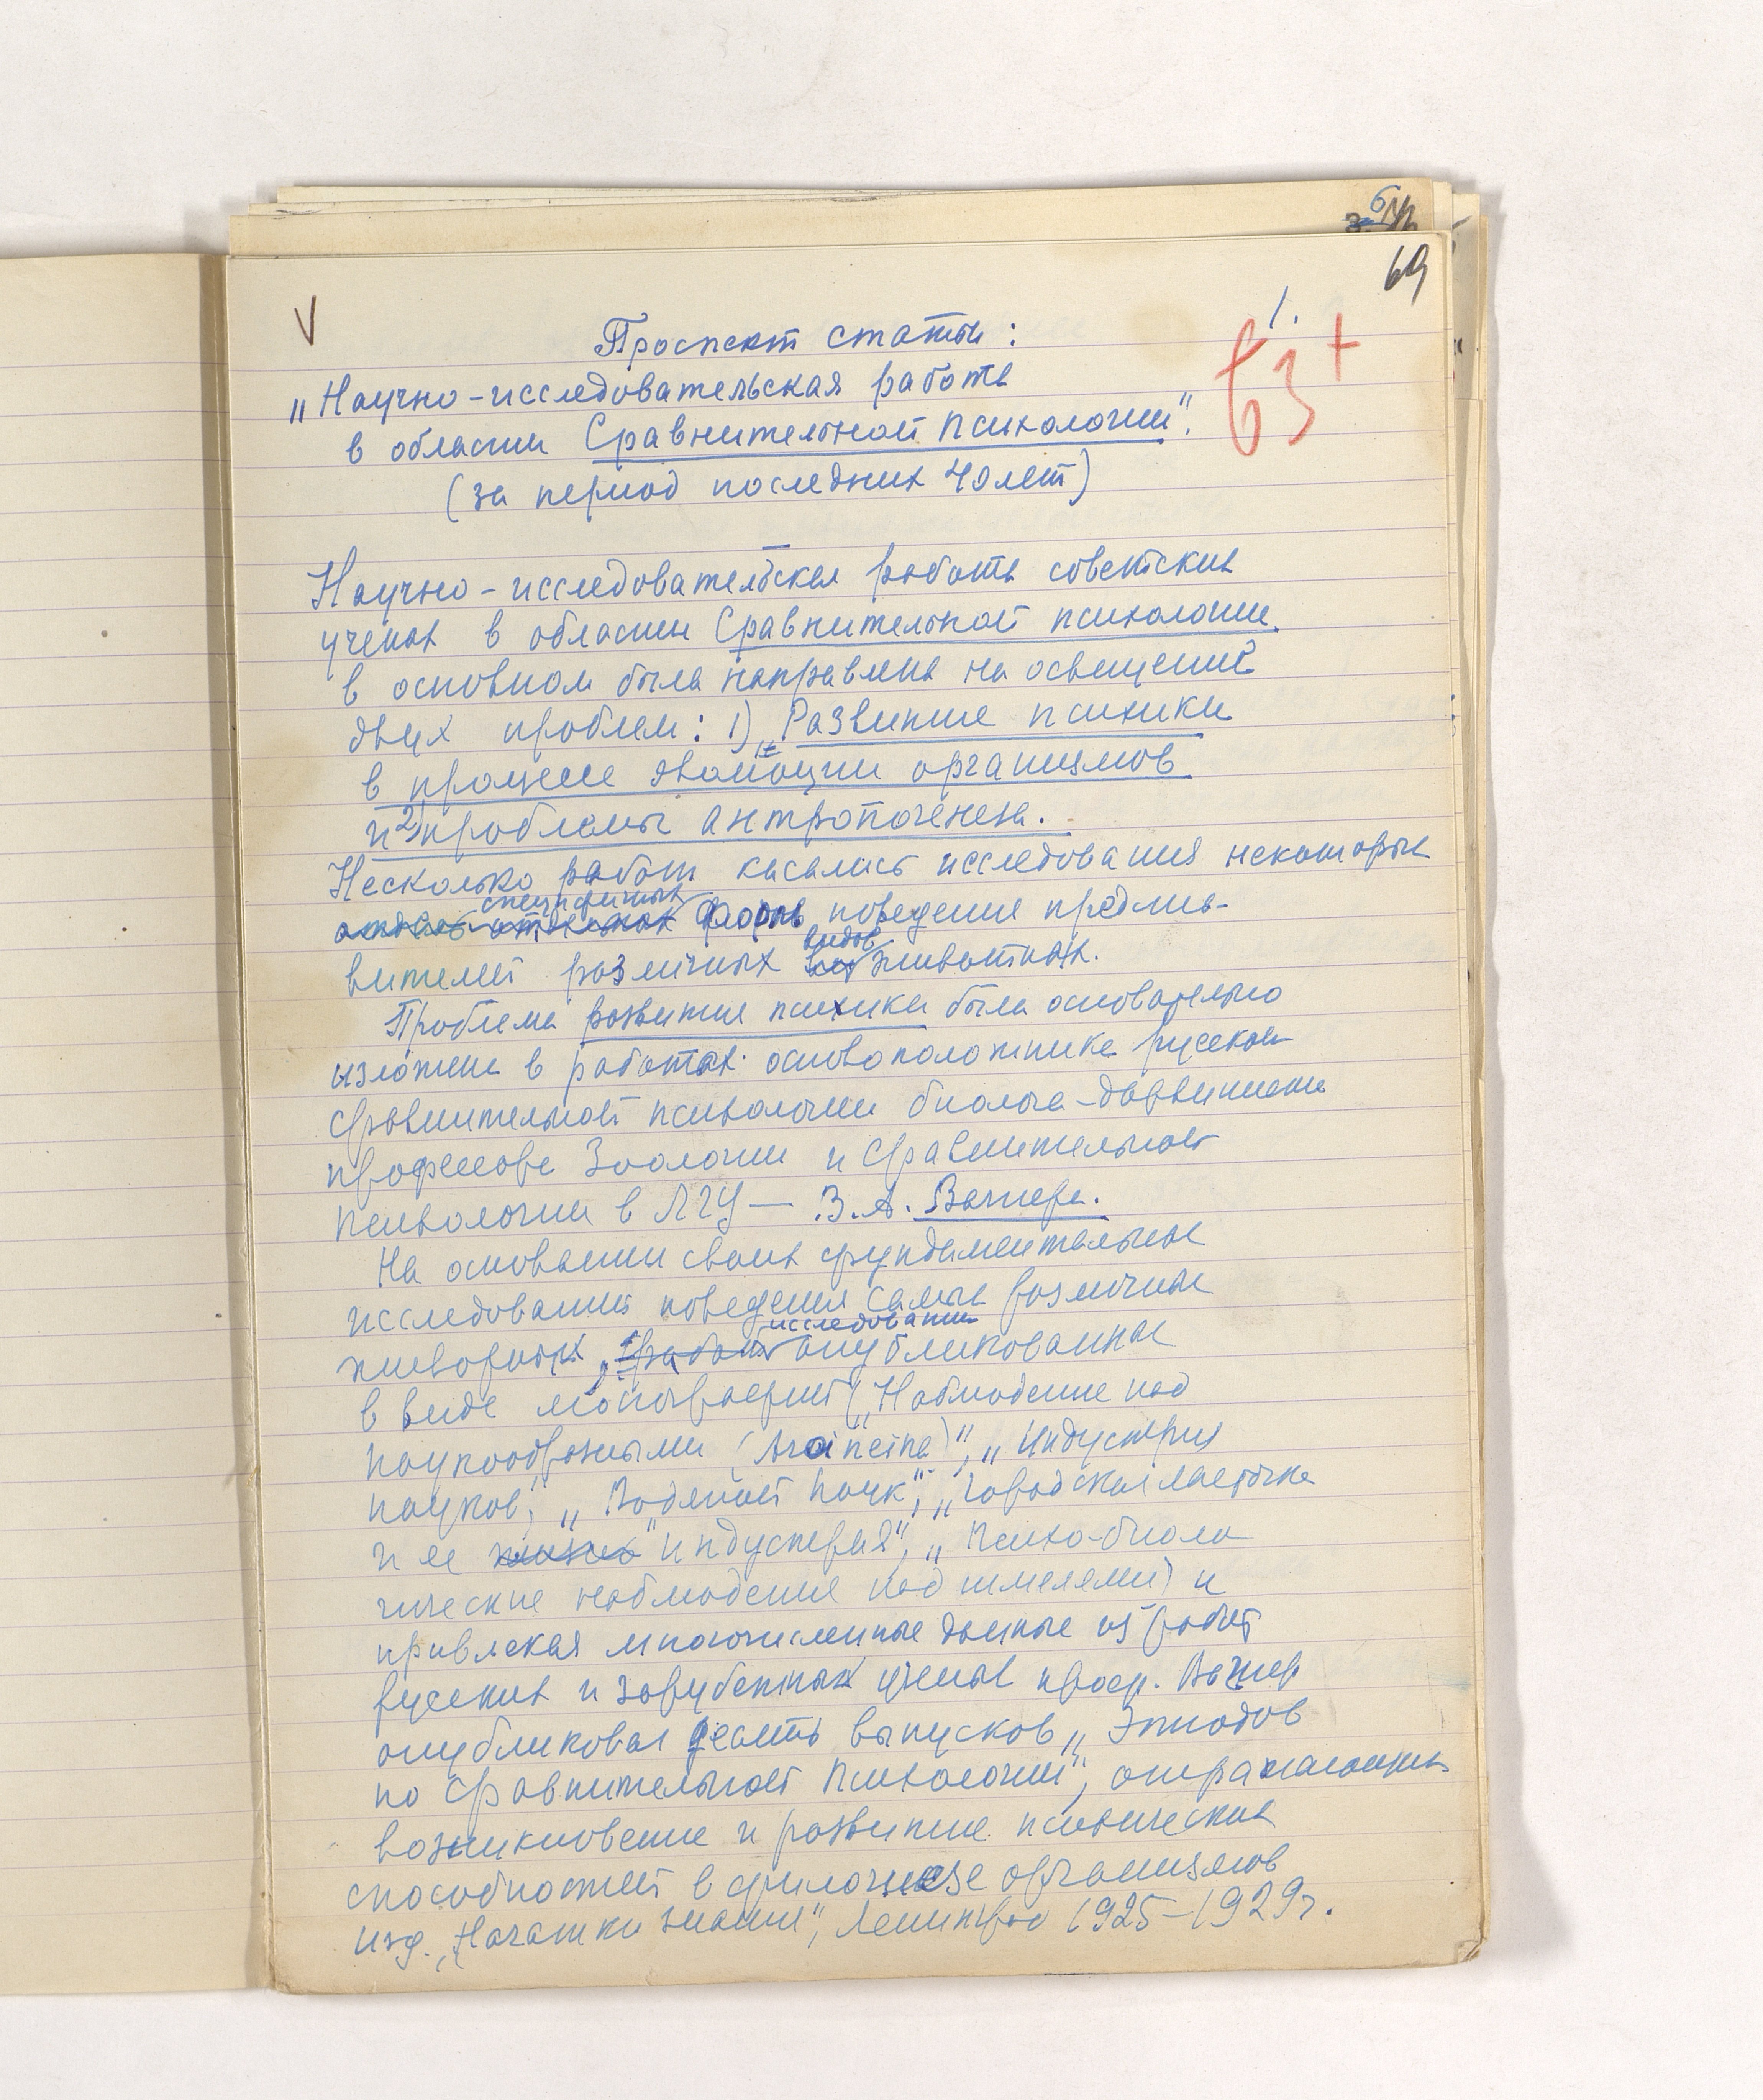 69
1.
63+
V
Проспект статьи:
„Научно-исследовательская работа
в области Сравнительной психологии".
(за период последних 40 лет)
Научно-исследовательская работа советских
ученых в области Сравнительной психологии
в основном была направлена на освещение
двух проблем: 1) „Развитие психики
в процессе эволюции организмов
и 2) проблемы антропогенеза.
Несколько работ касались исследования некоторых
специфичных
отдельных форм поведения предста-
видов
вителей различных животных.
Проблема развития психики была основательно
изложена в работах основоположника русской
сравнительной психологии биолога-дарвиниста
профессора Зоологии и Сравнительной
психологии в ЛГУ — В. А. Вагнера.
На основании своих фундаментальных
исследований поведения самых различных
исследования
животных, опубликованных
в виде монографий („Наблюдение над
паукообразными (Araineina)", „Индустрия
пауков", „Водяной паук", „Городская ласточка
и ее индустрия", „Психо-биоло
гические наблюдения над шмелями) и
привлекая многочисленные данные из работ
русских и зарубежных ученых проф. Вагнер
опубликовал десять выпусков „Этюдов
по Сравнительной психологии", отражающих
возникновение и развитие психических
способностей в филогенезе организмов
изд. „Начатки знаний", Ленинград 1925–1929 г.